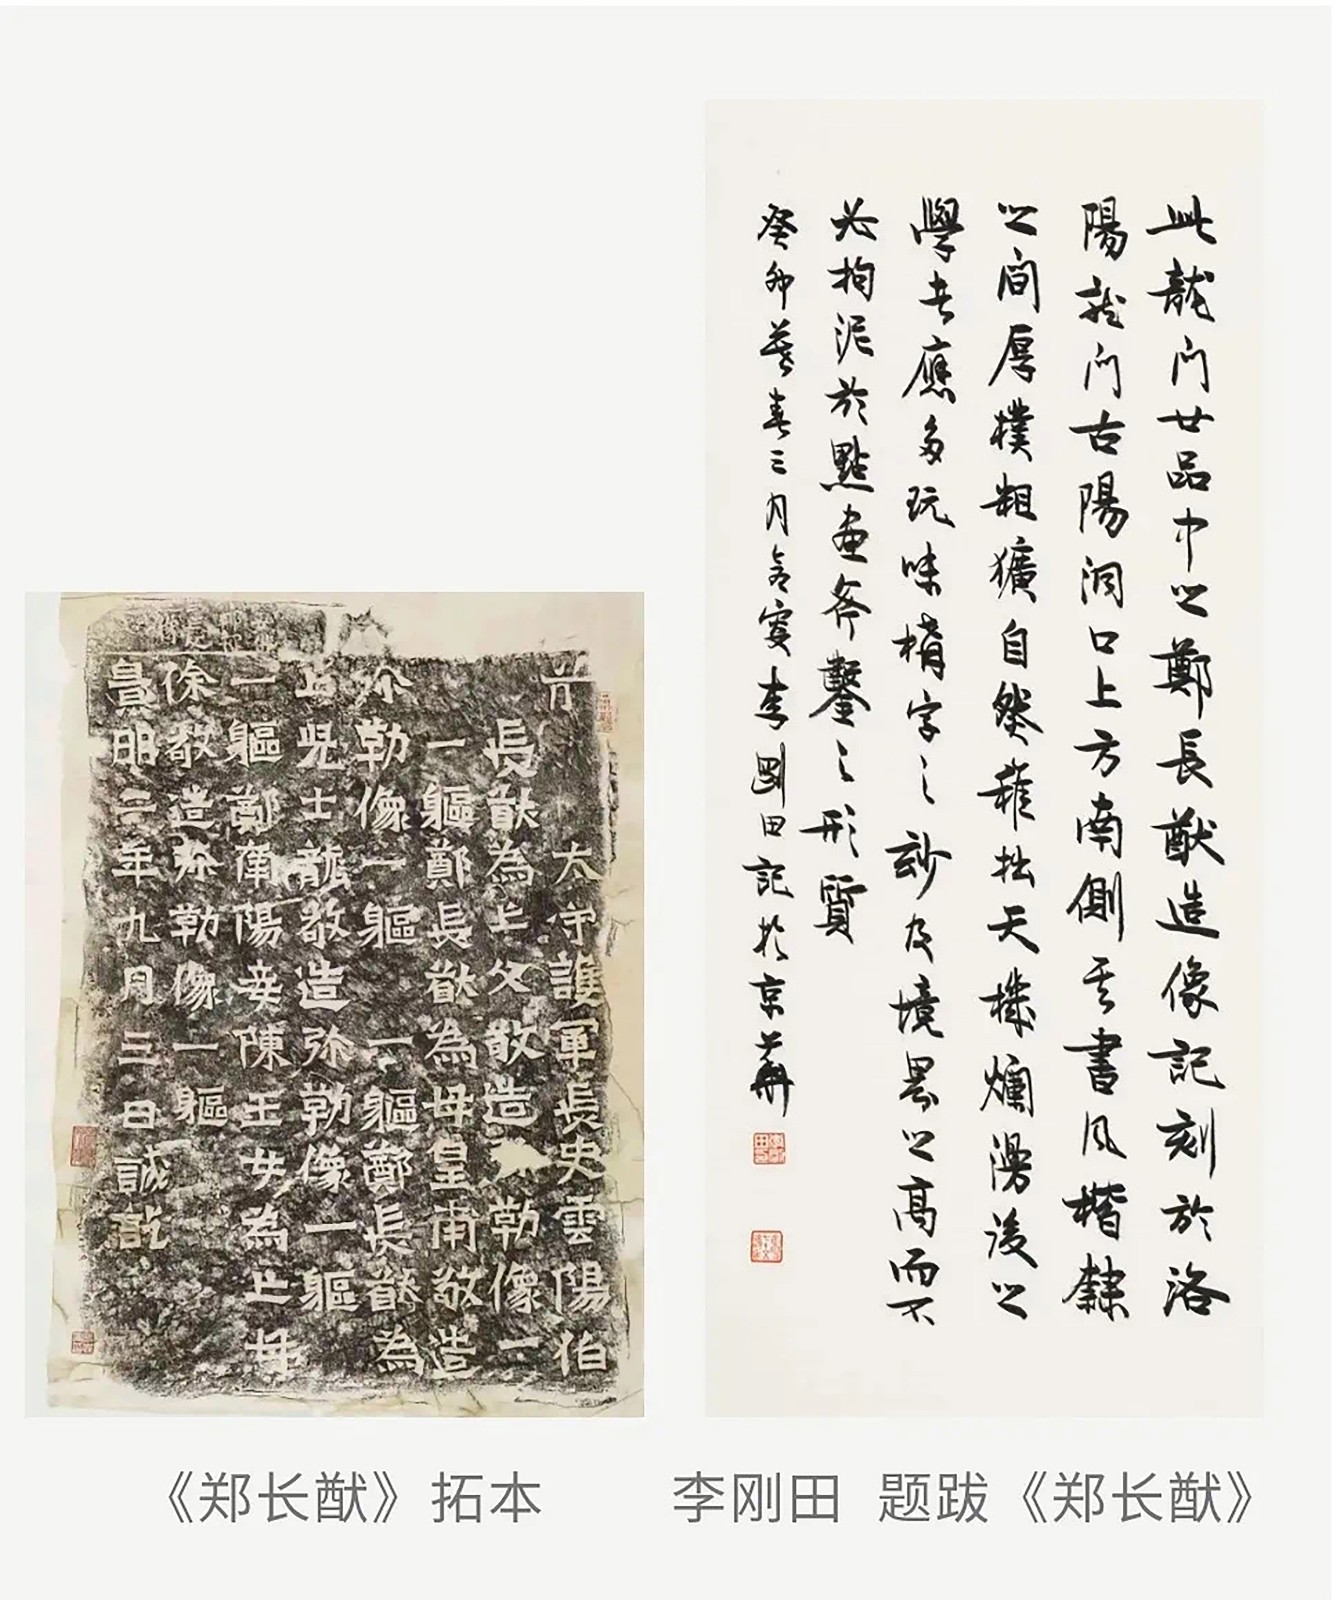 太守護軍長史雲陽伯
長猷為亡父敬造勒像一
一軀鄭長猷為母皇甫敬造
弥勒像一軀一軀鄭長猷為
亡兒士龍敬造弥勒像一軀
一軀鄭南陽妾陳玉女為亡母
徐敬造弥勒像一軀
景明二年九月三日誡訖
此龍門廿品中之鄭長猷造像記刻於洛
陽龍門古陽洞口上方南側其書風楷隸
之間厚樸粗獷自然稚拙天機爛漫後之
學者應多玩味構字之妙及境界之高而不
必拘泥於點畫斧鑿之形質
癸卯暮春三月李剛田記於京華
《郑长猷》拓本
李刚田 题跋《郑长猷》